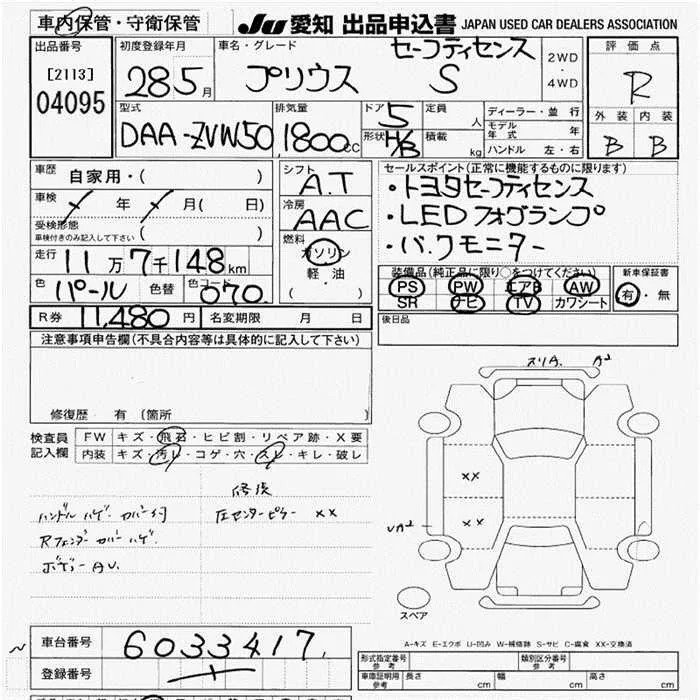 車内保管・守衛保管
JU 愛知 出品申込書 JAPAN USED CAR DEALERS ASSOCIATION
出品番号
[2113]
04095
初度登録年月
28 5月
車名・グレード
セーフティセンス
プリウス S
2WD
・
4WD
評価点
R
外装 内装
B B
型式
DAA-ZVW50
排気量
1800cc
ドア
5
形状 H/B
定員
人
積載
kg
ディーラー・並行
モデル年式 年
ハンドル 左・右
車歴
自家用・( )
車検
年 月( 日)
受検形態
車検付きのみ記入して下さい ( )
走行 11万7千148km
色 パール 色替 色コード 070
R券 11,480円 名変期限 月 日
シフト
A.T
冷房
AAC
燃料
ガソリン
軽・油
( )
セールスポイント(正常に機能するものに限ります)
・トヨタセーフティセンス
・LEDフォグランプ
・バックモニター
装備品(純正品に限り○をつけてください)
PS PW エアB AW
SR ナビ TV カワシート
新車保証書
有・無
後日品
注意事項申告欄(不具合内容等は具体的に記入して下さい)
修復歴 有(箇所 )
検査員
記入欄
FW キズ・飛石・ヒビ割・リペア跡・X要
内装 キズ・汚レ・コゲ・穴・スレ・キレ・破レ
修復
ハンドル ハゲ カバー付
左センターピラー ××
Rフェンダー カバー ハゲ
ボデー AU
スリA A²
××
××
UA²
スペア
A-キズ E-エクボ U-凹み W-補修跡 S-サビ C-腐食 XX-交換済
車台番号 6033417
登録番号
形式指定番号
参考
類別区分番号
参考
車庫証明用
参考
長さ cm 幅 cm 高さ cm